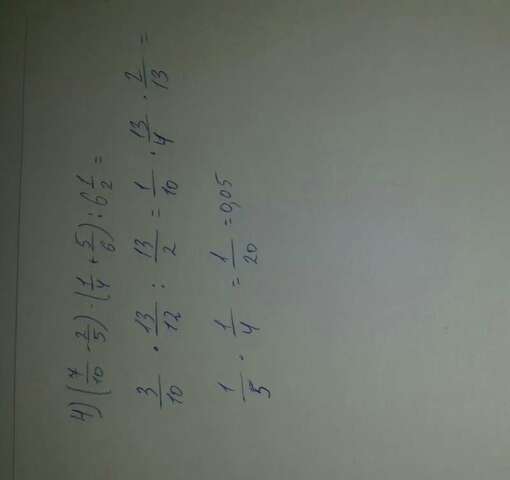 4) (7/10 - 2/5) · (1/4 + 5/6) : 6 1/2 =
3/10 · 13/12 : 13/2 = 1/10 · 13/4 · 2/13 =
1/5 · 1/4 = 1/20 = 0,05